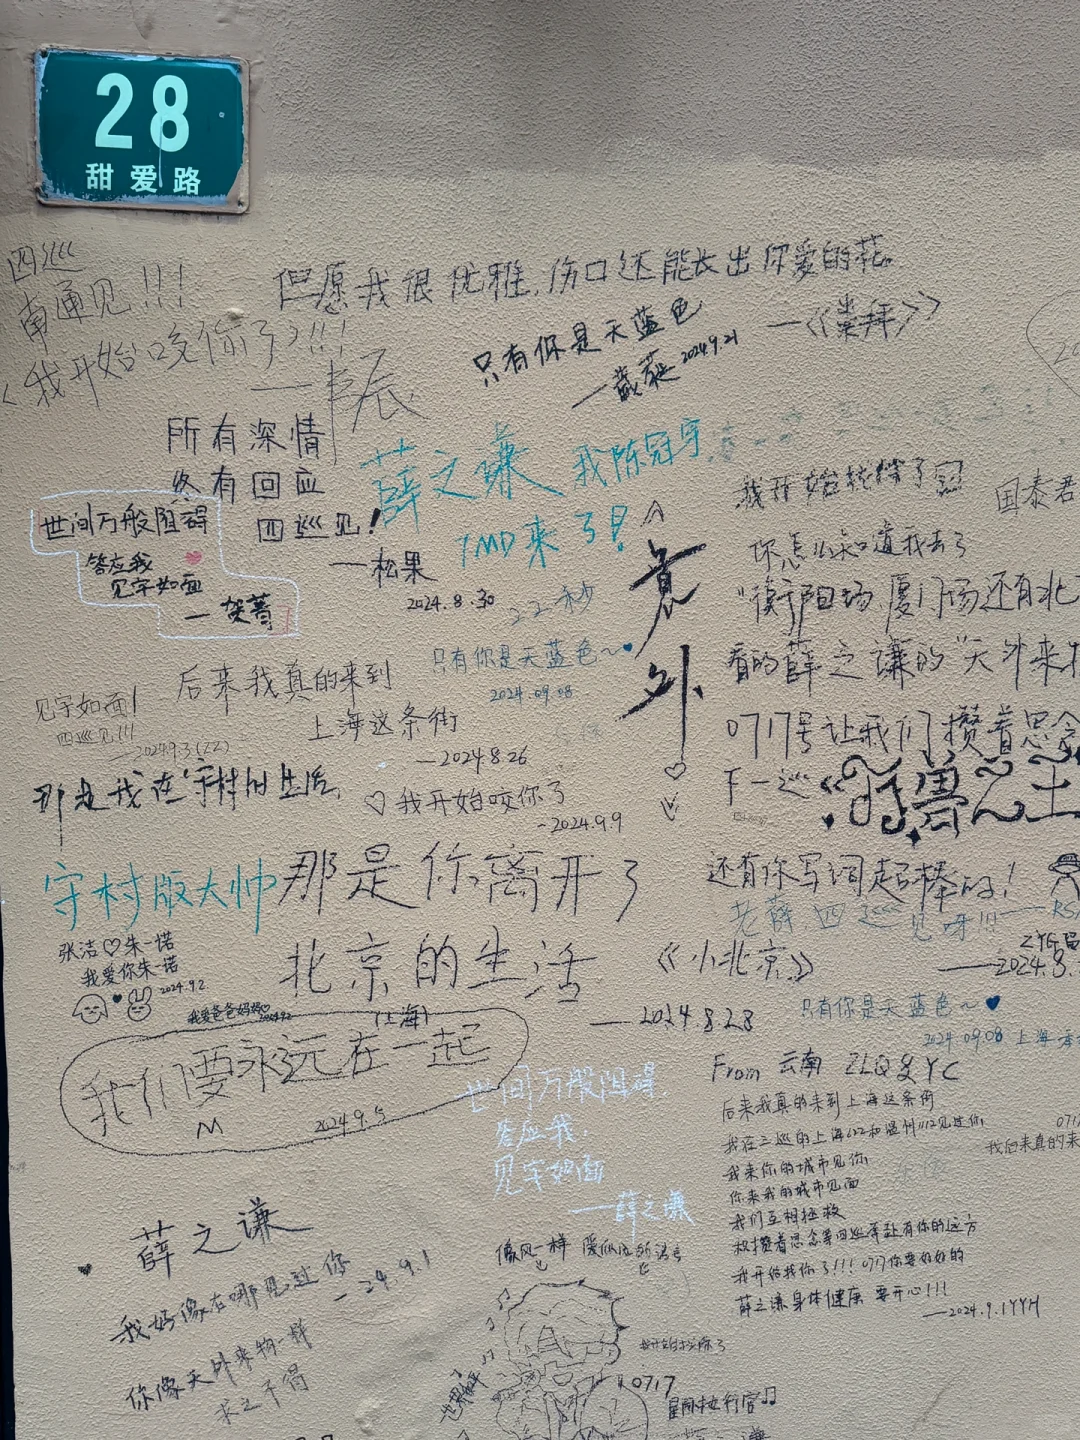 28
甜爱路
四巡
南通见!!!
《我开始咬你了》!!!
但愿我很优雅,伤口还能长出你爱的花。
—《崇拜》
只有你是天蓝色
2024.9.21
所有深情
终有回应
四巡见!
—松果
2024.8.30
薛之谦 我陈冠宇
IMD来了!
世间万般阻碍
答应我
见字如面
我开始
国泰君
你怎么知道我去了
"衡阳场,厦门场还有北
看的薛之谦的"天外来物
0717号让我们攒着思念
下一巡《
兽之
意外
22秒
只有你是天蓝色~
2024.09.08
后来我真的来到
上海这条街
—2024.8.26
见字如面!
四巡见!!!
—2024.9.3(ZZ)
那是我在守村的生活,
我开始咬你了
-2024.9.9
守村版大帅
那是你离开了
北京的生活
《小北京》
(上海)
—2024.8.28
还有你写词超棒的!
老薛,四巡见呀!!!
张洁♡朱一诺
我爱你朱一诺
2024.9.2
我爱爸爸妈妈
我们要永远在一起
M
2024.9.5
只有你是天蓝色~
2024.09.08 上海
From 云南 ZLQ&YC
后来我真的来到上海这条街
我在三巡的上海622和温州1112见过你
我来你的城市见你
你来我的城市见面
我们互相拯救
积攒着思念等四巡再赴有你的远方
我开始找你了!!! 0717你要好好的
薛之谦身体健康 要开心!!!
—2024.9.1YYH
我后来真的来
世间万般阻碍,
答应我,
见字如面
—薛之谦
薛之谦
我好像在哪见过你
-24.9.1
你像天外来物一样
求之不得
像风一样
0717